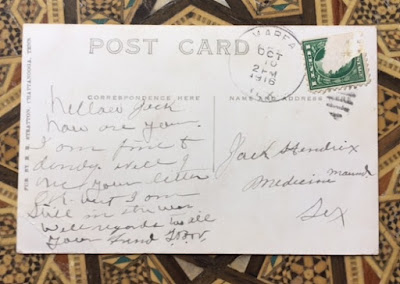 POST CARD
MARFA
OCT
10
2 PM
1918
TEX.
CORRESPONDENCE HERE
NAME AND ADDRESS HERE
Hellow Jack
how are you.
I am fine &
dandy. well I
your letter
O.K. but I am
Still in the war
Well regards to all
your friend
Jack Hendrix
Medicine Mound
Tex
PUB. BY E. B. STRATTON, CHATTANOOGA, TENN.